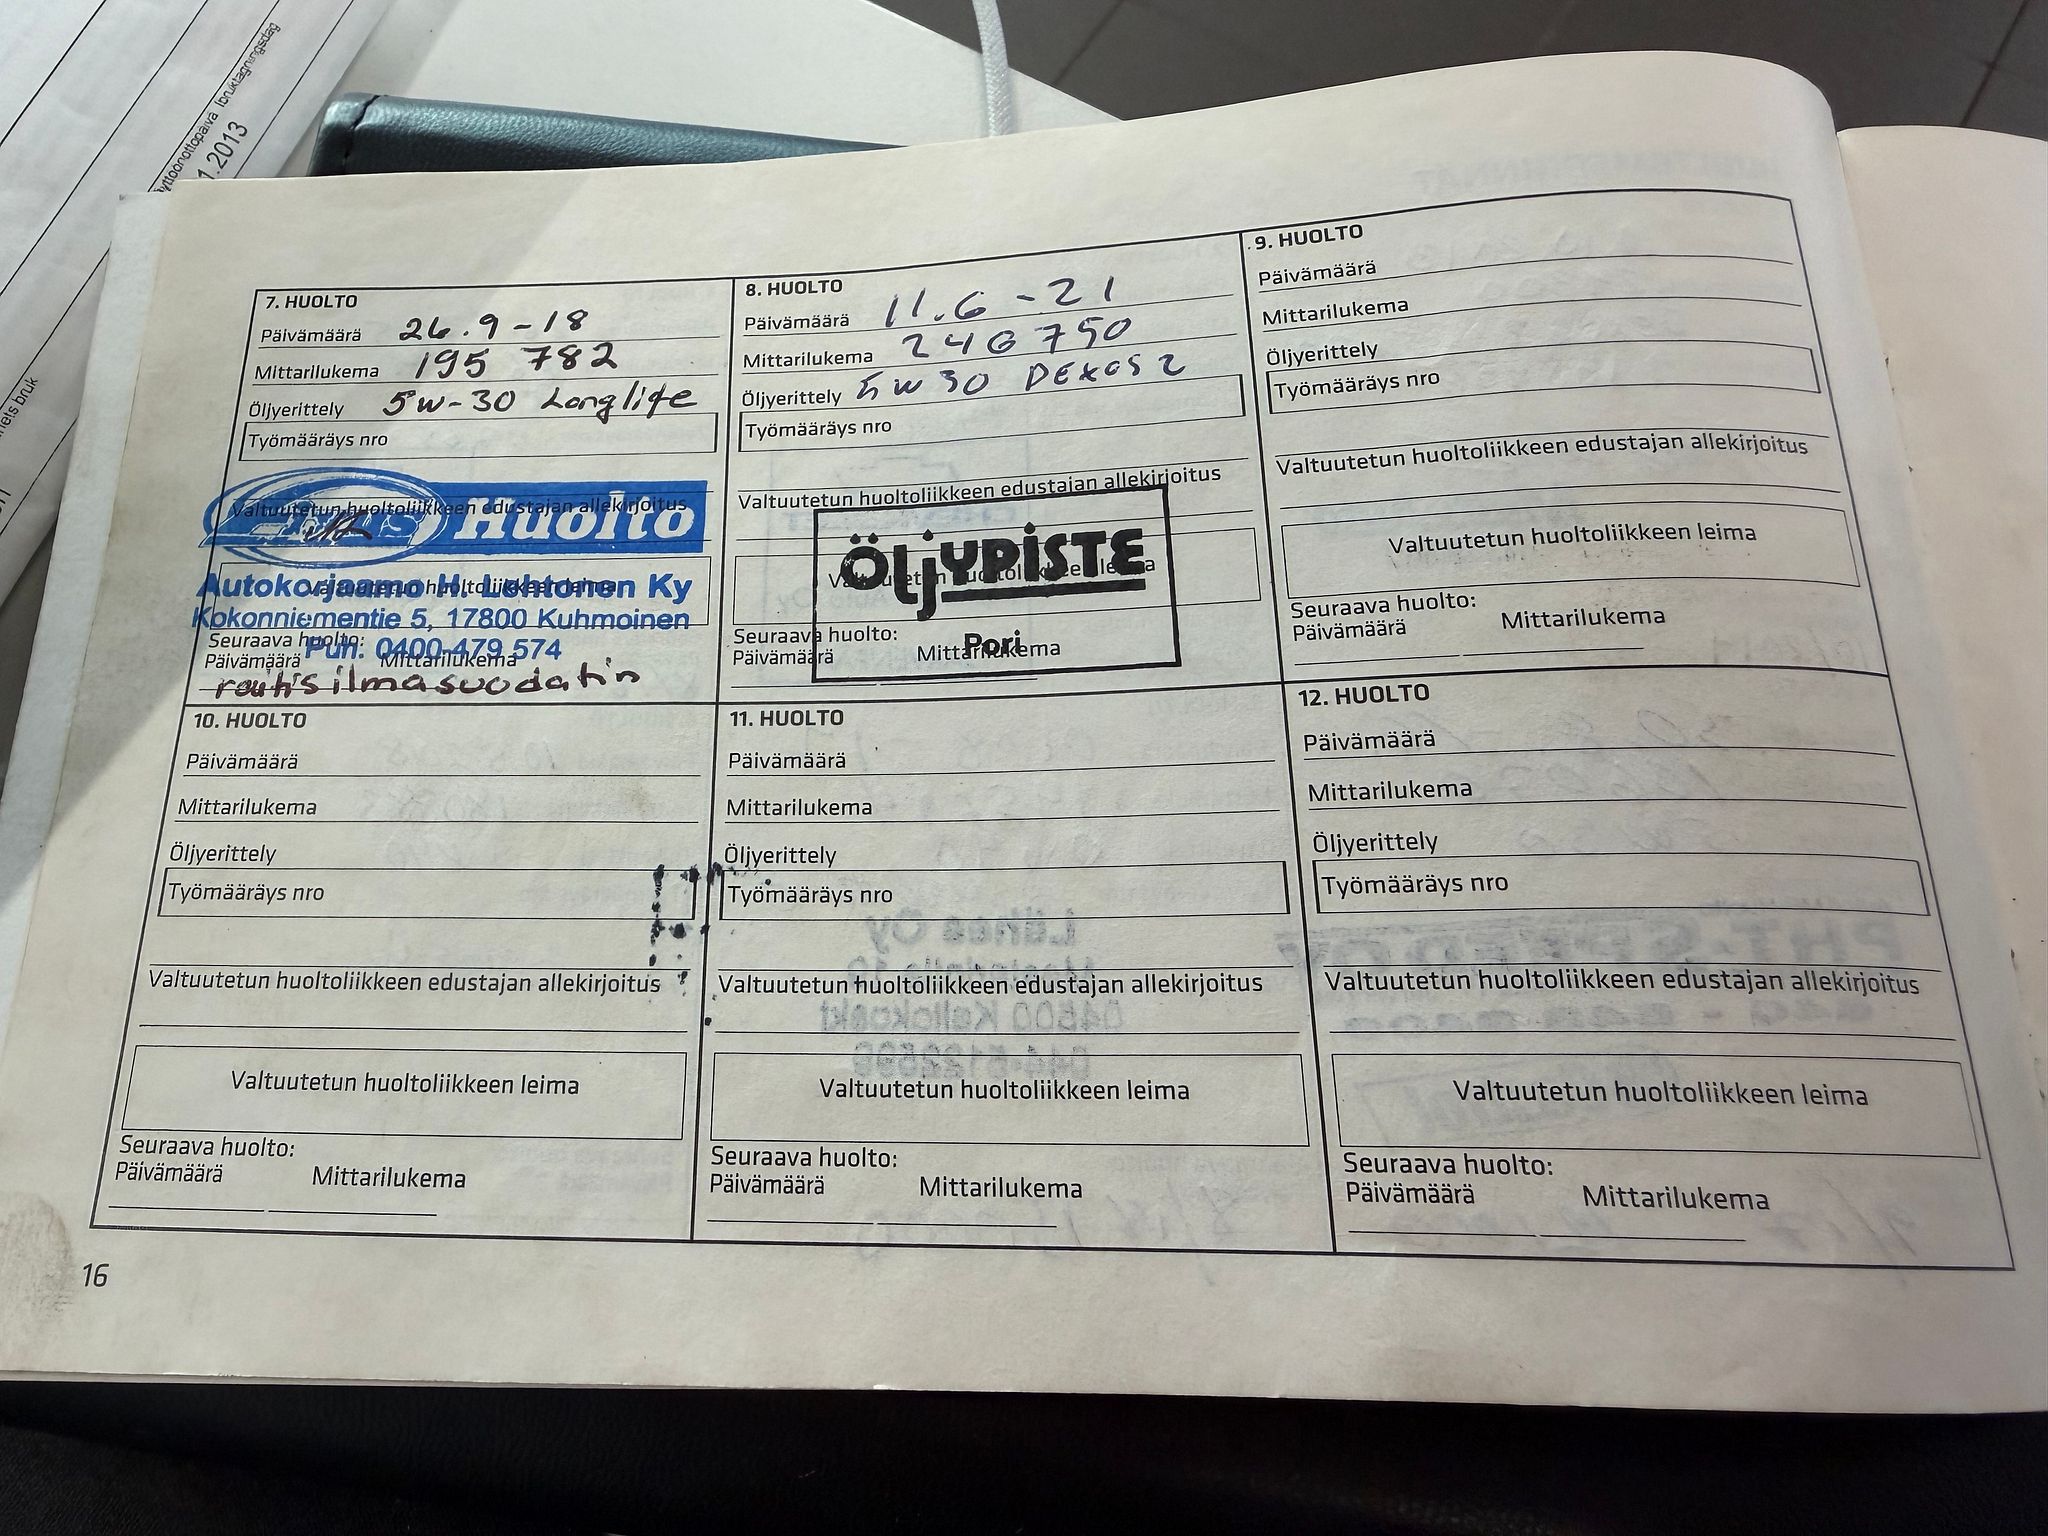 käyttöönottopäivä Ibruktagningsdag
1.2013
7. HUOLTO
Päivämäärä 26.9-18
Mittarilukema 195 782
Öljyerittely 5w-30 Longlife
Työmääräys nro
Valtuutetun huoltoliikkeen edustajan allekirjoitus
Huolto
Valtuutetun huoltoliikkeen leima
Autokorjaamo H. Lehtonen Ky
Kokonniementie 5, 17800 Kuhmoinen
Puh. 0400-479 574
Seuraava huolto:
Päivämäärä Mittarilukema
raitisilmasuodatin
8. HUOLTO
Päivämäärä 11.6-21
Mittarilukema 246 750
Öljyerittely 5w30 DEXOS 2
Työmääräys nro
Valtuutetun huoltoliikkeen edustajan allekirjoitus
Valtuutetun huoltoliikkeen leima
ÖLJYPISTE
Pori
Seuraava huolto:
Päivämäärä Mittarilukema
9. HUOLTO
Päivämäärä
Mittarilukema
Öljyerittely
Työmääräys nro
Valtuutetun huoltoliikkeen edustajan allekirjoitus
Valtuutetun huoltoliikkeen leima
Seuraava huolto:
Päivämäärä Mittarilukema
10. HUOLTO
Päivämäärä
Mittarilukema
Öljyerittely
Työmääräys nro
Valtuutetun huoltoliikkeen edustajan allekirjoitus
Valtuutetun huoltoliikkeen leima
Seuraava huolto:
Päivämäärä Mittarilukema
11. HUOLTO
Päivämäärä
Mittarilukema
Öljyerittely
Työmääräys nro
Valtuutetun huoltoliikkeen edustajan allekirjoitus
Valtuutetun huoltoliikkeen leima
Seuraava huolto:
Päivämäärä Mittarilukema
12. HUOLTO
Päivämäärä
Mittarilukema
Öljyerittely
Työmääräys nro
Valtuutetun huoltoliikkeen edustajan allekirjoitus
Valtuutetun huoltoliikkeen leima
Seuraava huolto:
Päivämäärä Mittarilukema
16